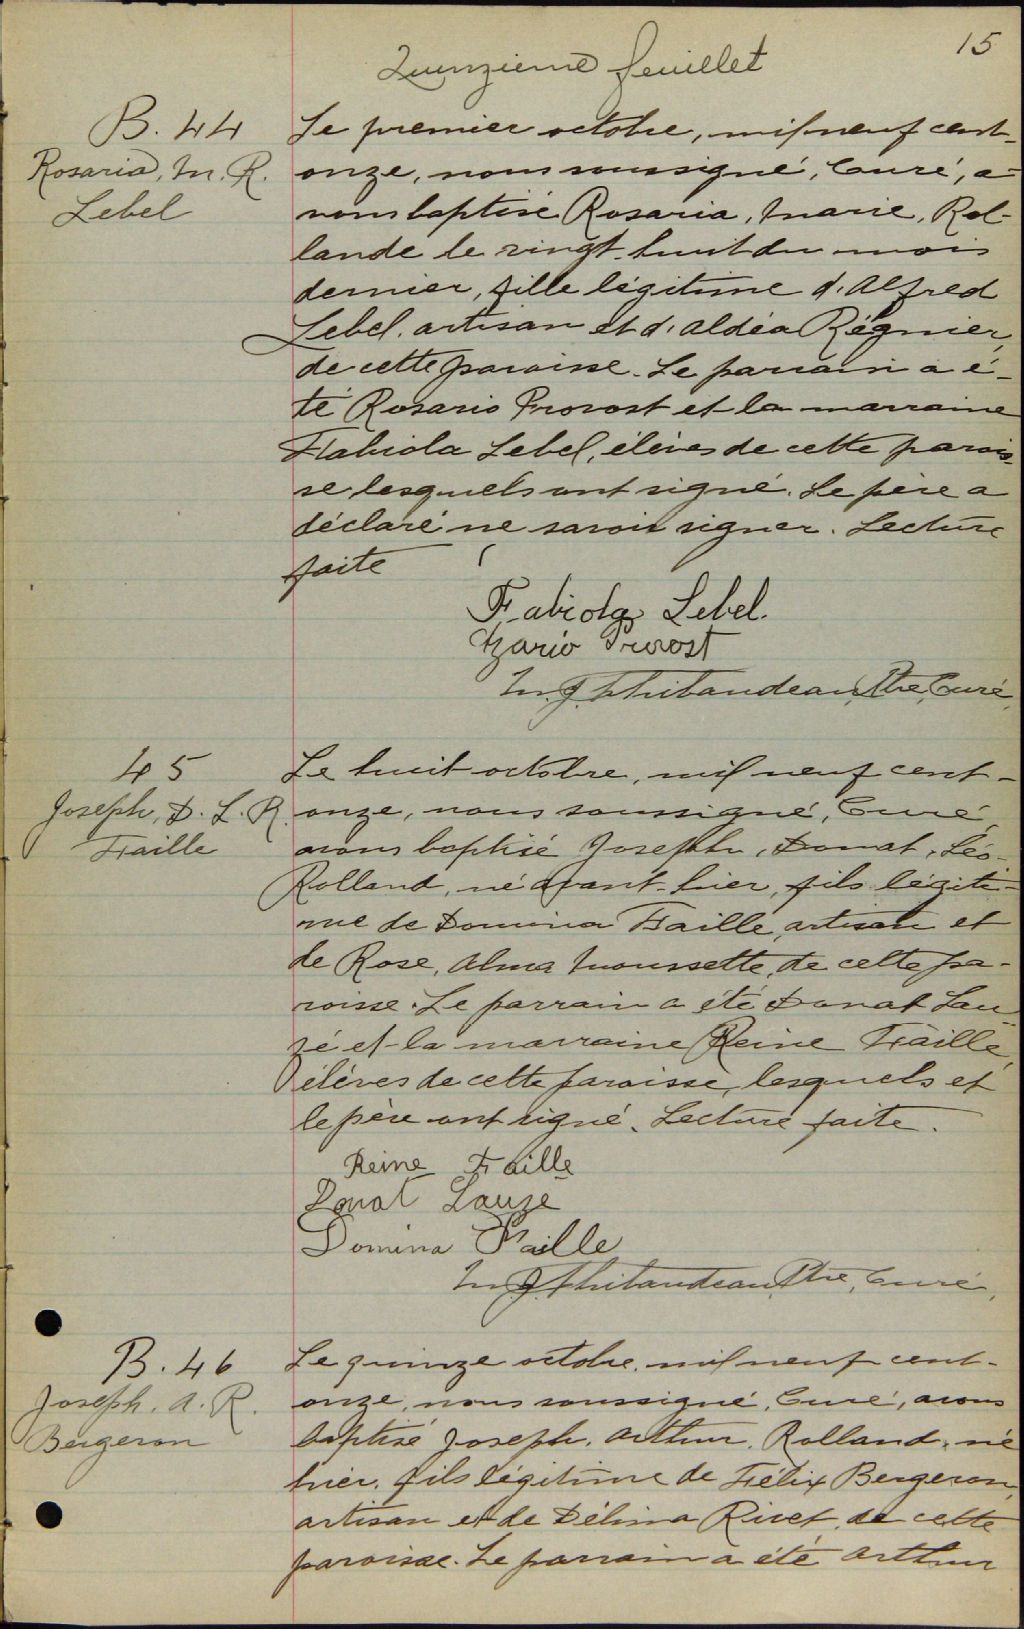 15
Quinzième feuillet
B. 44
Rosaria, M. R.
Lebel
Le premier octobre, mil neuf cent-
onze, nous soussigné, Curé, a-
vons baptisé Rosaria, Marie, Rol-
lande le vingt-huit du mois
dernier, fille légitime d'Alfred
Lebel, artisan et d'Aldéa Régnier,
de cette paroisse. Le parrain a é-
té Rosario Provost et la marraine
Fabiola Lebel, élèves de cette parois-
se lesquels ont signé. Le père a
déclaré ne savoir signer. Lecture
faite
Fabiola Lebel.
Provost
M. J. Thibaudeau, Ptre, Curé,
45
Joseph, D. L. R.
Faille
Le huit octobre, mil neuf cent-
onze, nous soussigné, Curé,
avons baptisé Joseph, Donat, Léo-
Rolland, né avant-hier, fils légiti-
me de Domina Faille, artisan et
de Rose, Alma Moussette, de cette pa-
roisse. Le parrain a été Donat Lau-
zé et la marraine Reine Faille,
élèves de cette paroisse, lesquels et
le père ont signé. Lecture faite.
Reine Faille
Donat Lauze
Domina Faille
M. J. Thibaudeau, Ptre, Curé,
B. 46
Joseph, A. R.
Bergeron
Le quinze octobre, mil neuf cent-
onze, nous soussigné, Curé, avons
baptisé Joseph, Arthur, Rolland, né
hier, fils légitime de Félix Bergeron,
artisan et de Délima Rivet, de cette
paroisse. Le parrain a été Arthur